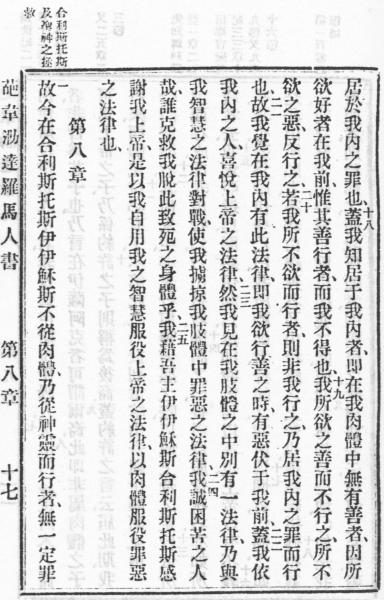 合利斯托斯
及聖神之拯
救
居於我內之罪也、十八蓋我知居于我內者、即在我肉體中無有善者、因所
欲好者在我前、惟其善行者、而我不得也、十九我所欲之善而不行之、所不
欲之惡、反行之、二十若我所不欲而行者、則非我行之、乃居我內之罪而行
也、二一故我覺在我內有此法律、即我欲行善之時、有惡伏于我前、二二蓋我依
我內之人喜悅上帝之法律、二三然我見在我肢體之中別有一法律、乃與
我智慧之法律對戰、使我擄掠我肢體中罪惡之法律、二四我誠困苦之人
哉、誰克救我脫此致死之身體乎、二五我藉吾主伊伊穌斯合利斯托斯感
謝我上帝、是以我自用我之智慧服役上帝之法律、以肉體服役罪惡
之法律也、
第八章
一故今在合利斯托斯伊伊穌斯不從肉體、乃從神靈而行者、無一定罪
葩韋泐達羅馬人書 第八章 十七